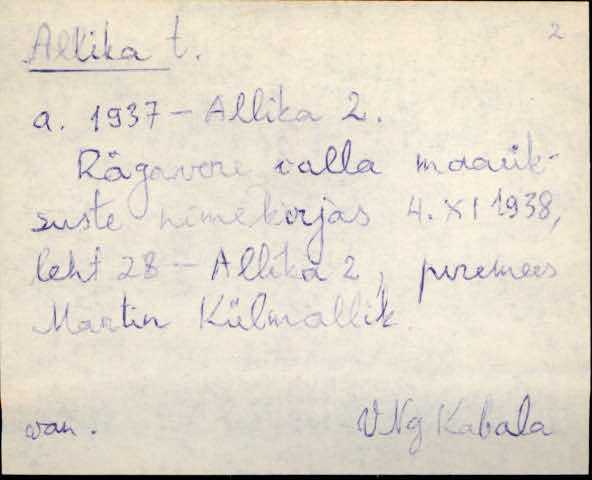 Allika t.
2
a. 1937 - Allika 2.
Rägavere valla maaük-
suste nimekirjas 4. XI 1938,
leht 28 - Allika 2, peremees
Martin Külmallik.
van.
VNg Kabala